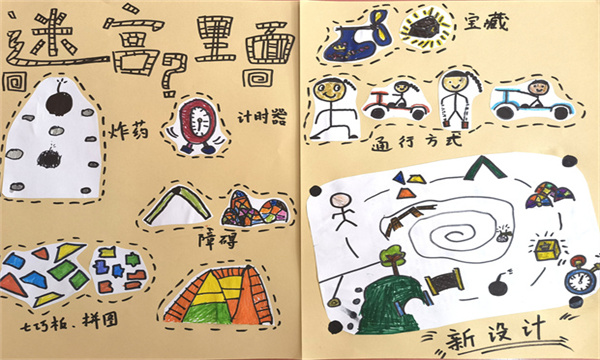 迷宫?里面
炸药
计时器
障碍
七巧板、拼图
宝藏
通行方式
新设计